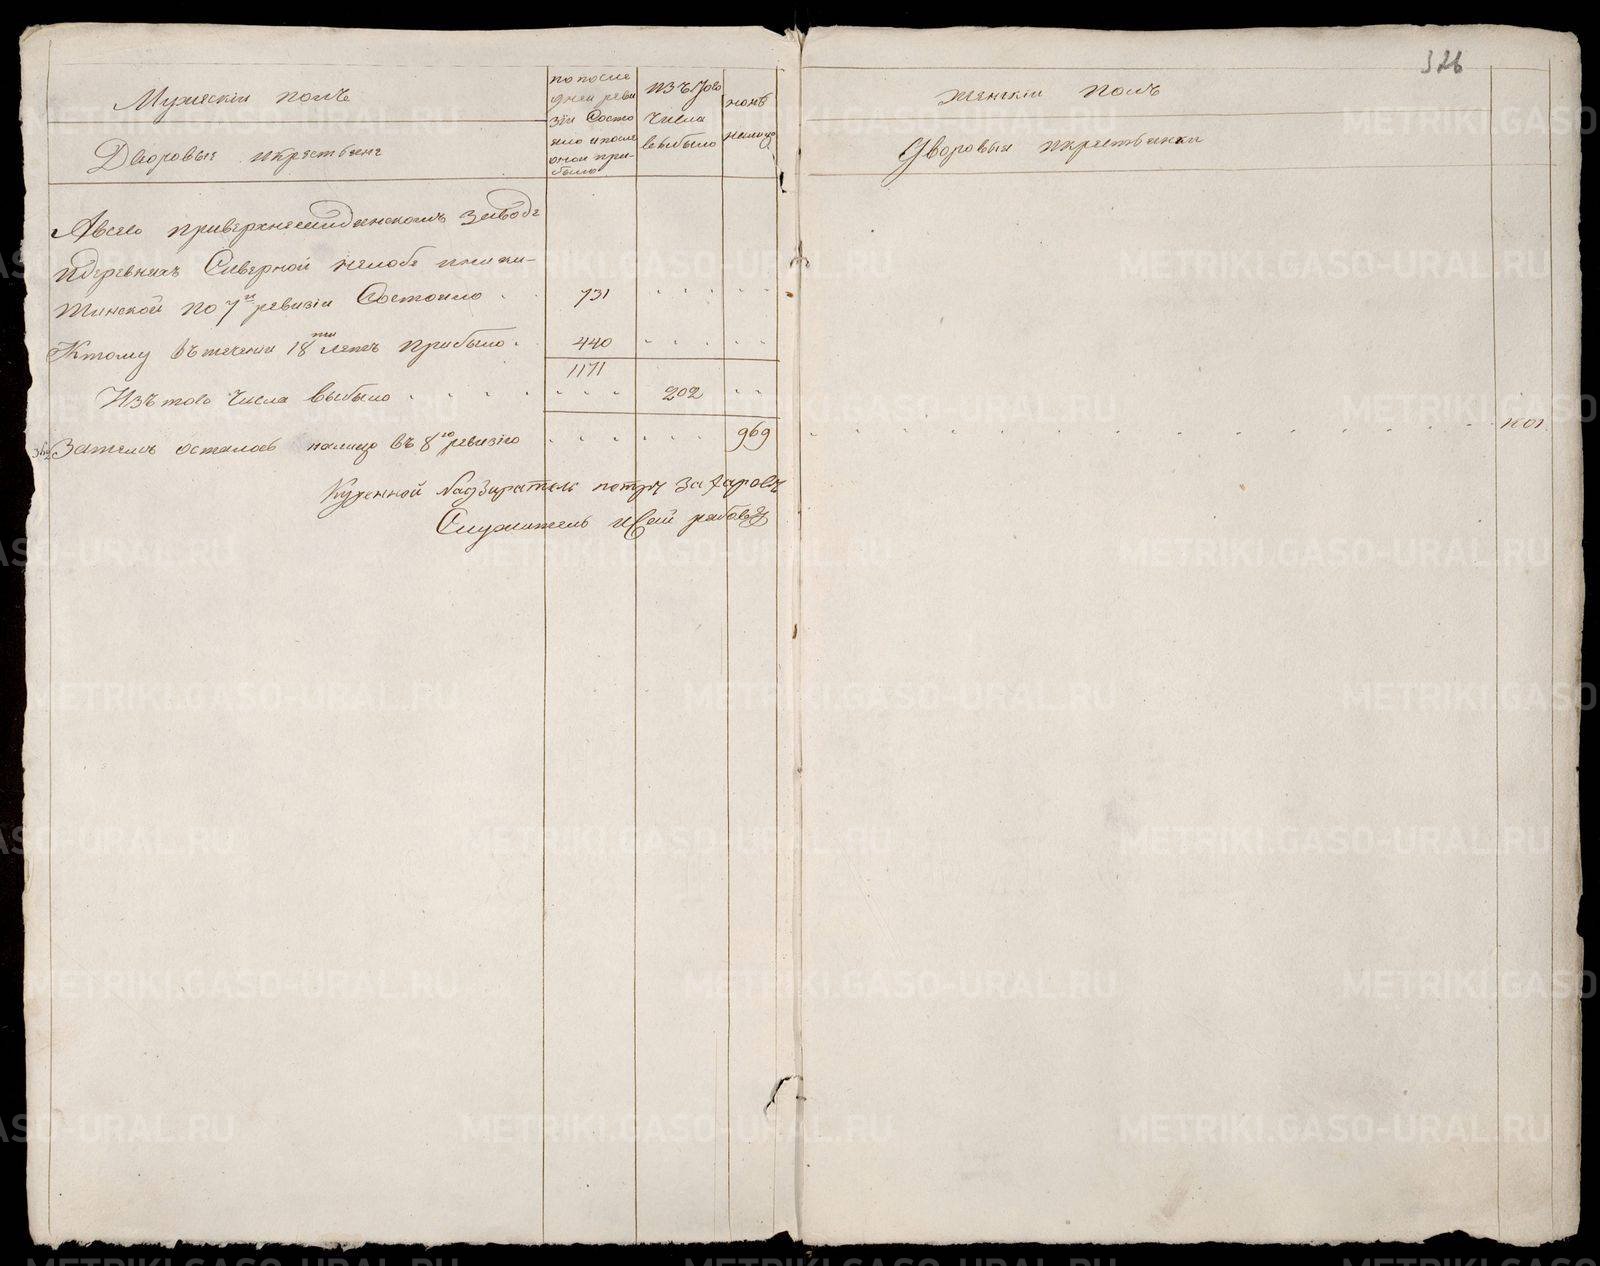 326
Мужескій полъ
Дворовые и крестьяне
по после
дней реви
зіи Состо
яло и после
оной при-
было
изъ того
Числа
выбыло
нынѣ
на лицо
А всего при верхнешайтанскомъ Заводѣ
и деревняхъ Сѣверной
тинской по 7й ревизіи Состояло
731
К тому въ теченіи 18ти летъ прибыло
440
1171
Изъ того Числа выбыло
202
Затемъ осталось на лицо въ 8ю ревизію
969
Куренной Надзиратель петръ Захаровъ
Служитель исай рябовъ
женскій полъ
дворовыя и крестьянки
1101
METRIKI.GASO-URAL.RU